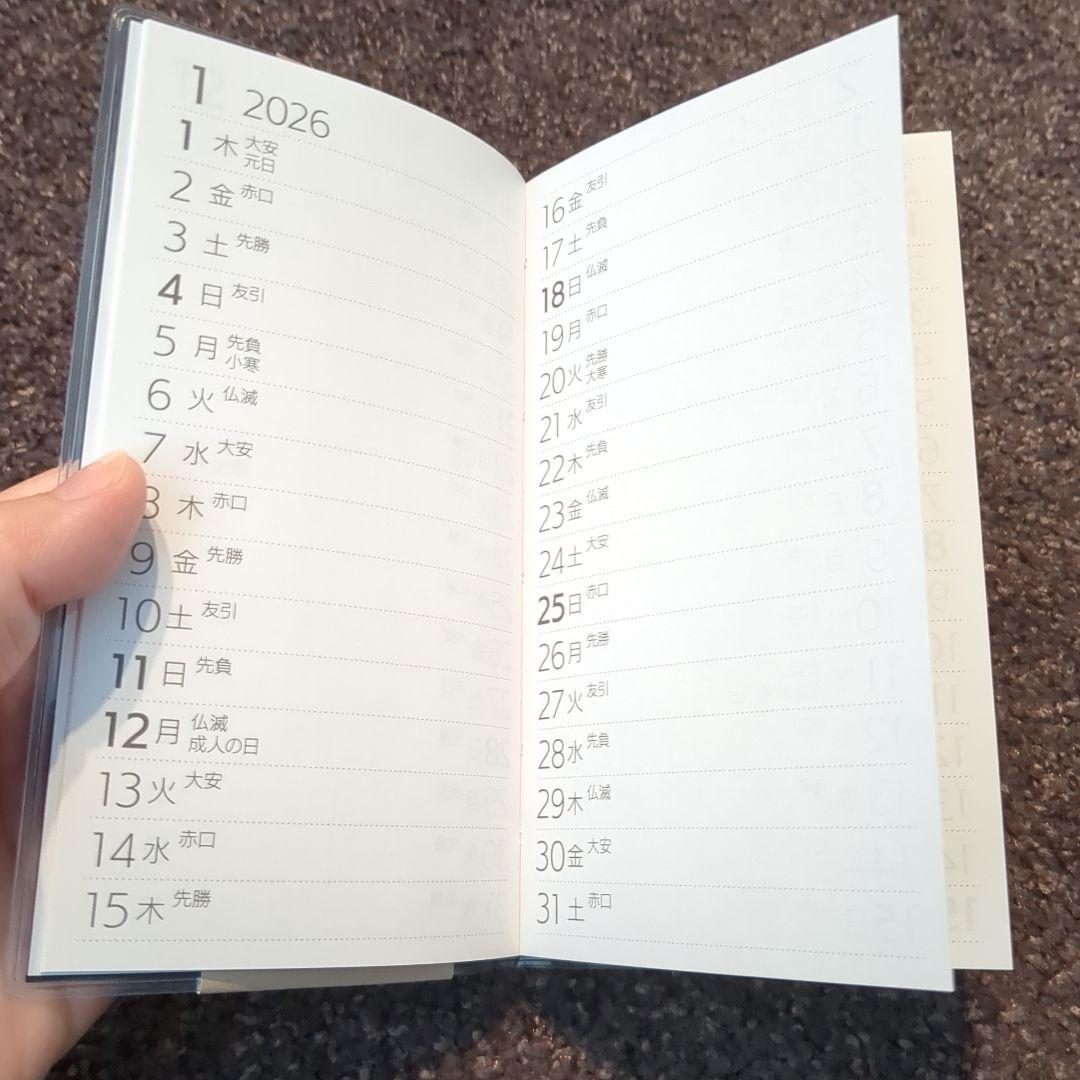 1 2026
1 木 大安
元日
2 金 赤口
3 土 先勝
4 日 友引
5 月 先負
小寒
6 火 仏滅
7 水 大安
8 木 赤口
9 金 先勝
10 土 友引
11 日 先負
12 月 仏滅
成人の日
13 火 大安
14 水 赤口
15 木 先勝
16 金 友引
17 土 先負
18 日 仏滅
19 月 赤口
20 火 先勝
大寒
21 水 友引
22 木 先負
23 金 仏滅
24 土 大安
25 日 赤口
26 月 先勝
27 火 友引
28 水 先負
29 木 仏滅
30 金 大安
31 土 赤口